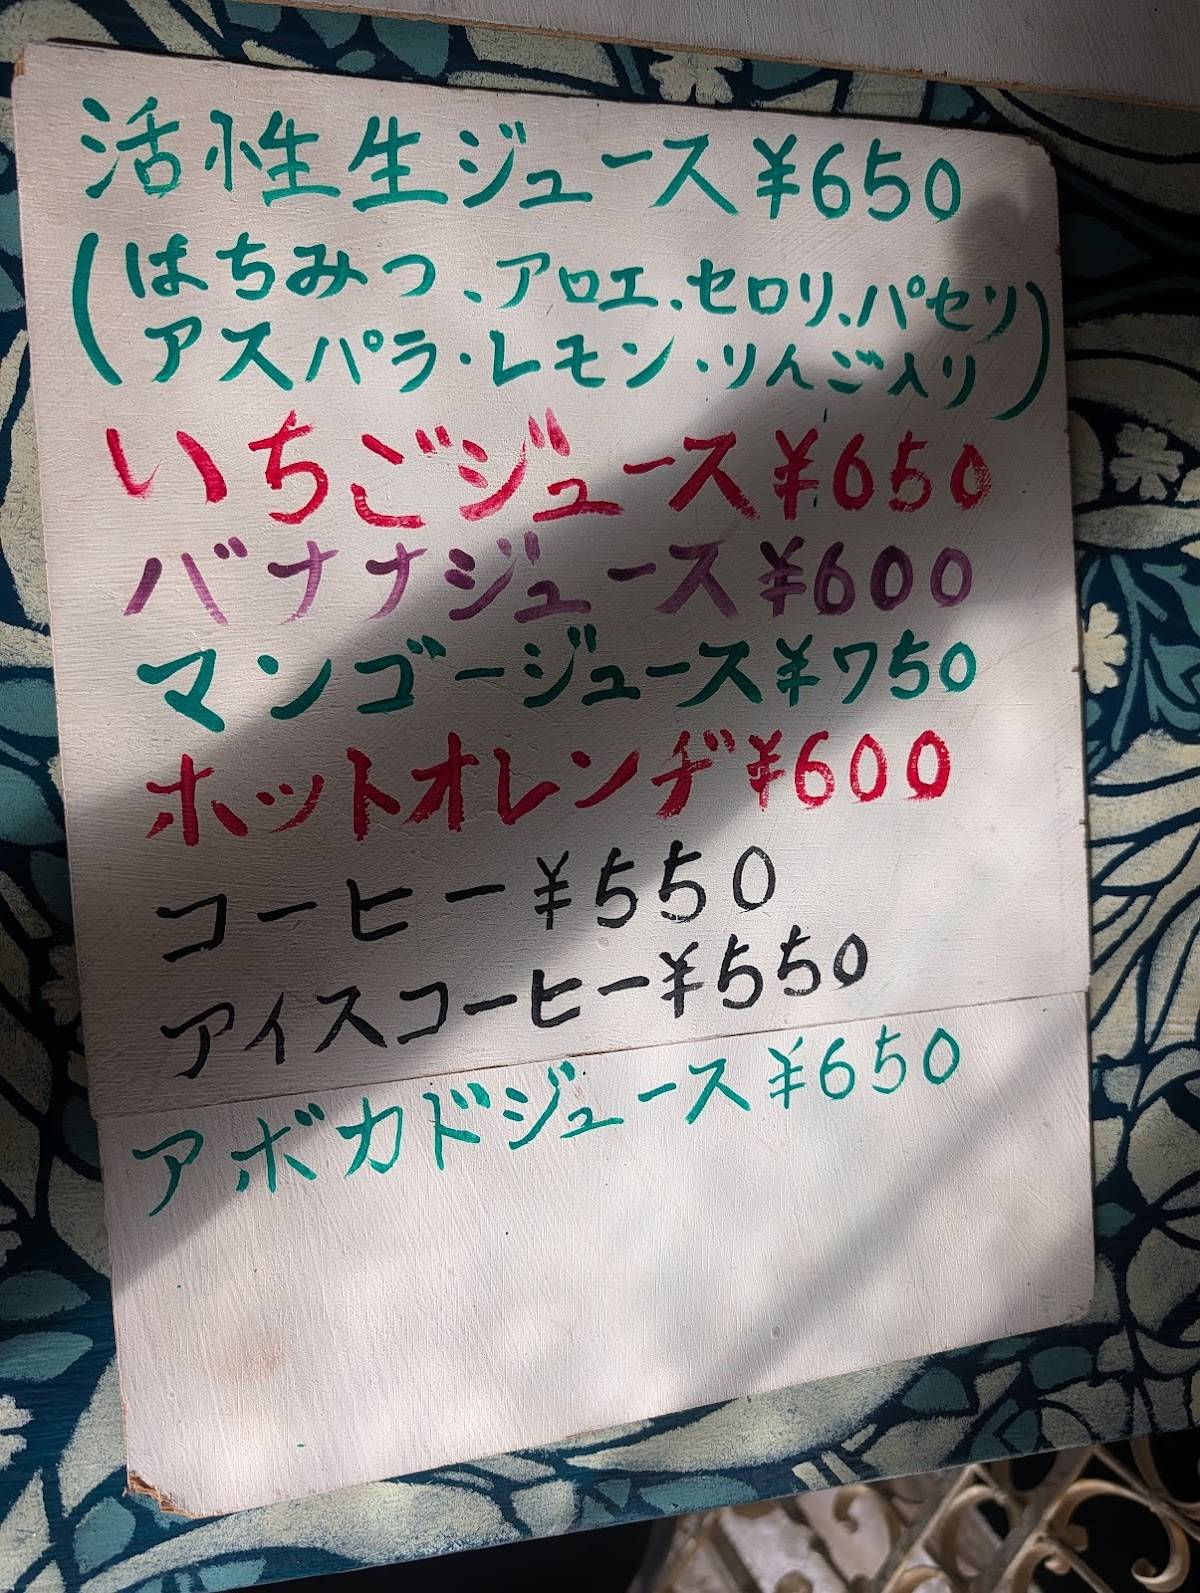 活性生ジュース ¥650
(はちみつ、アロエ、セロリ、パセリ
アスパラ・レモン・りんご入り)
いちごジュース ¥650
バナナジュース ¥600
マンゴージュース ¥750
ホットオレンヂ ¥600
コーヒー ¥550
アイスコーヒー ¥550
アボカドジュース ¥650